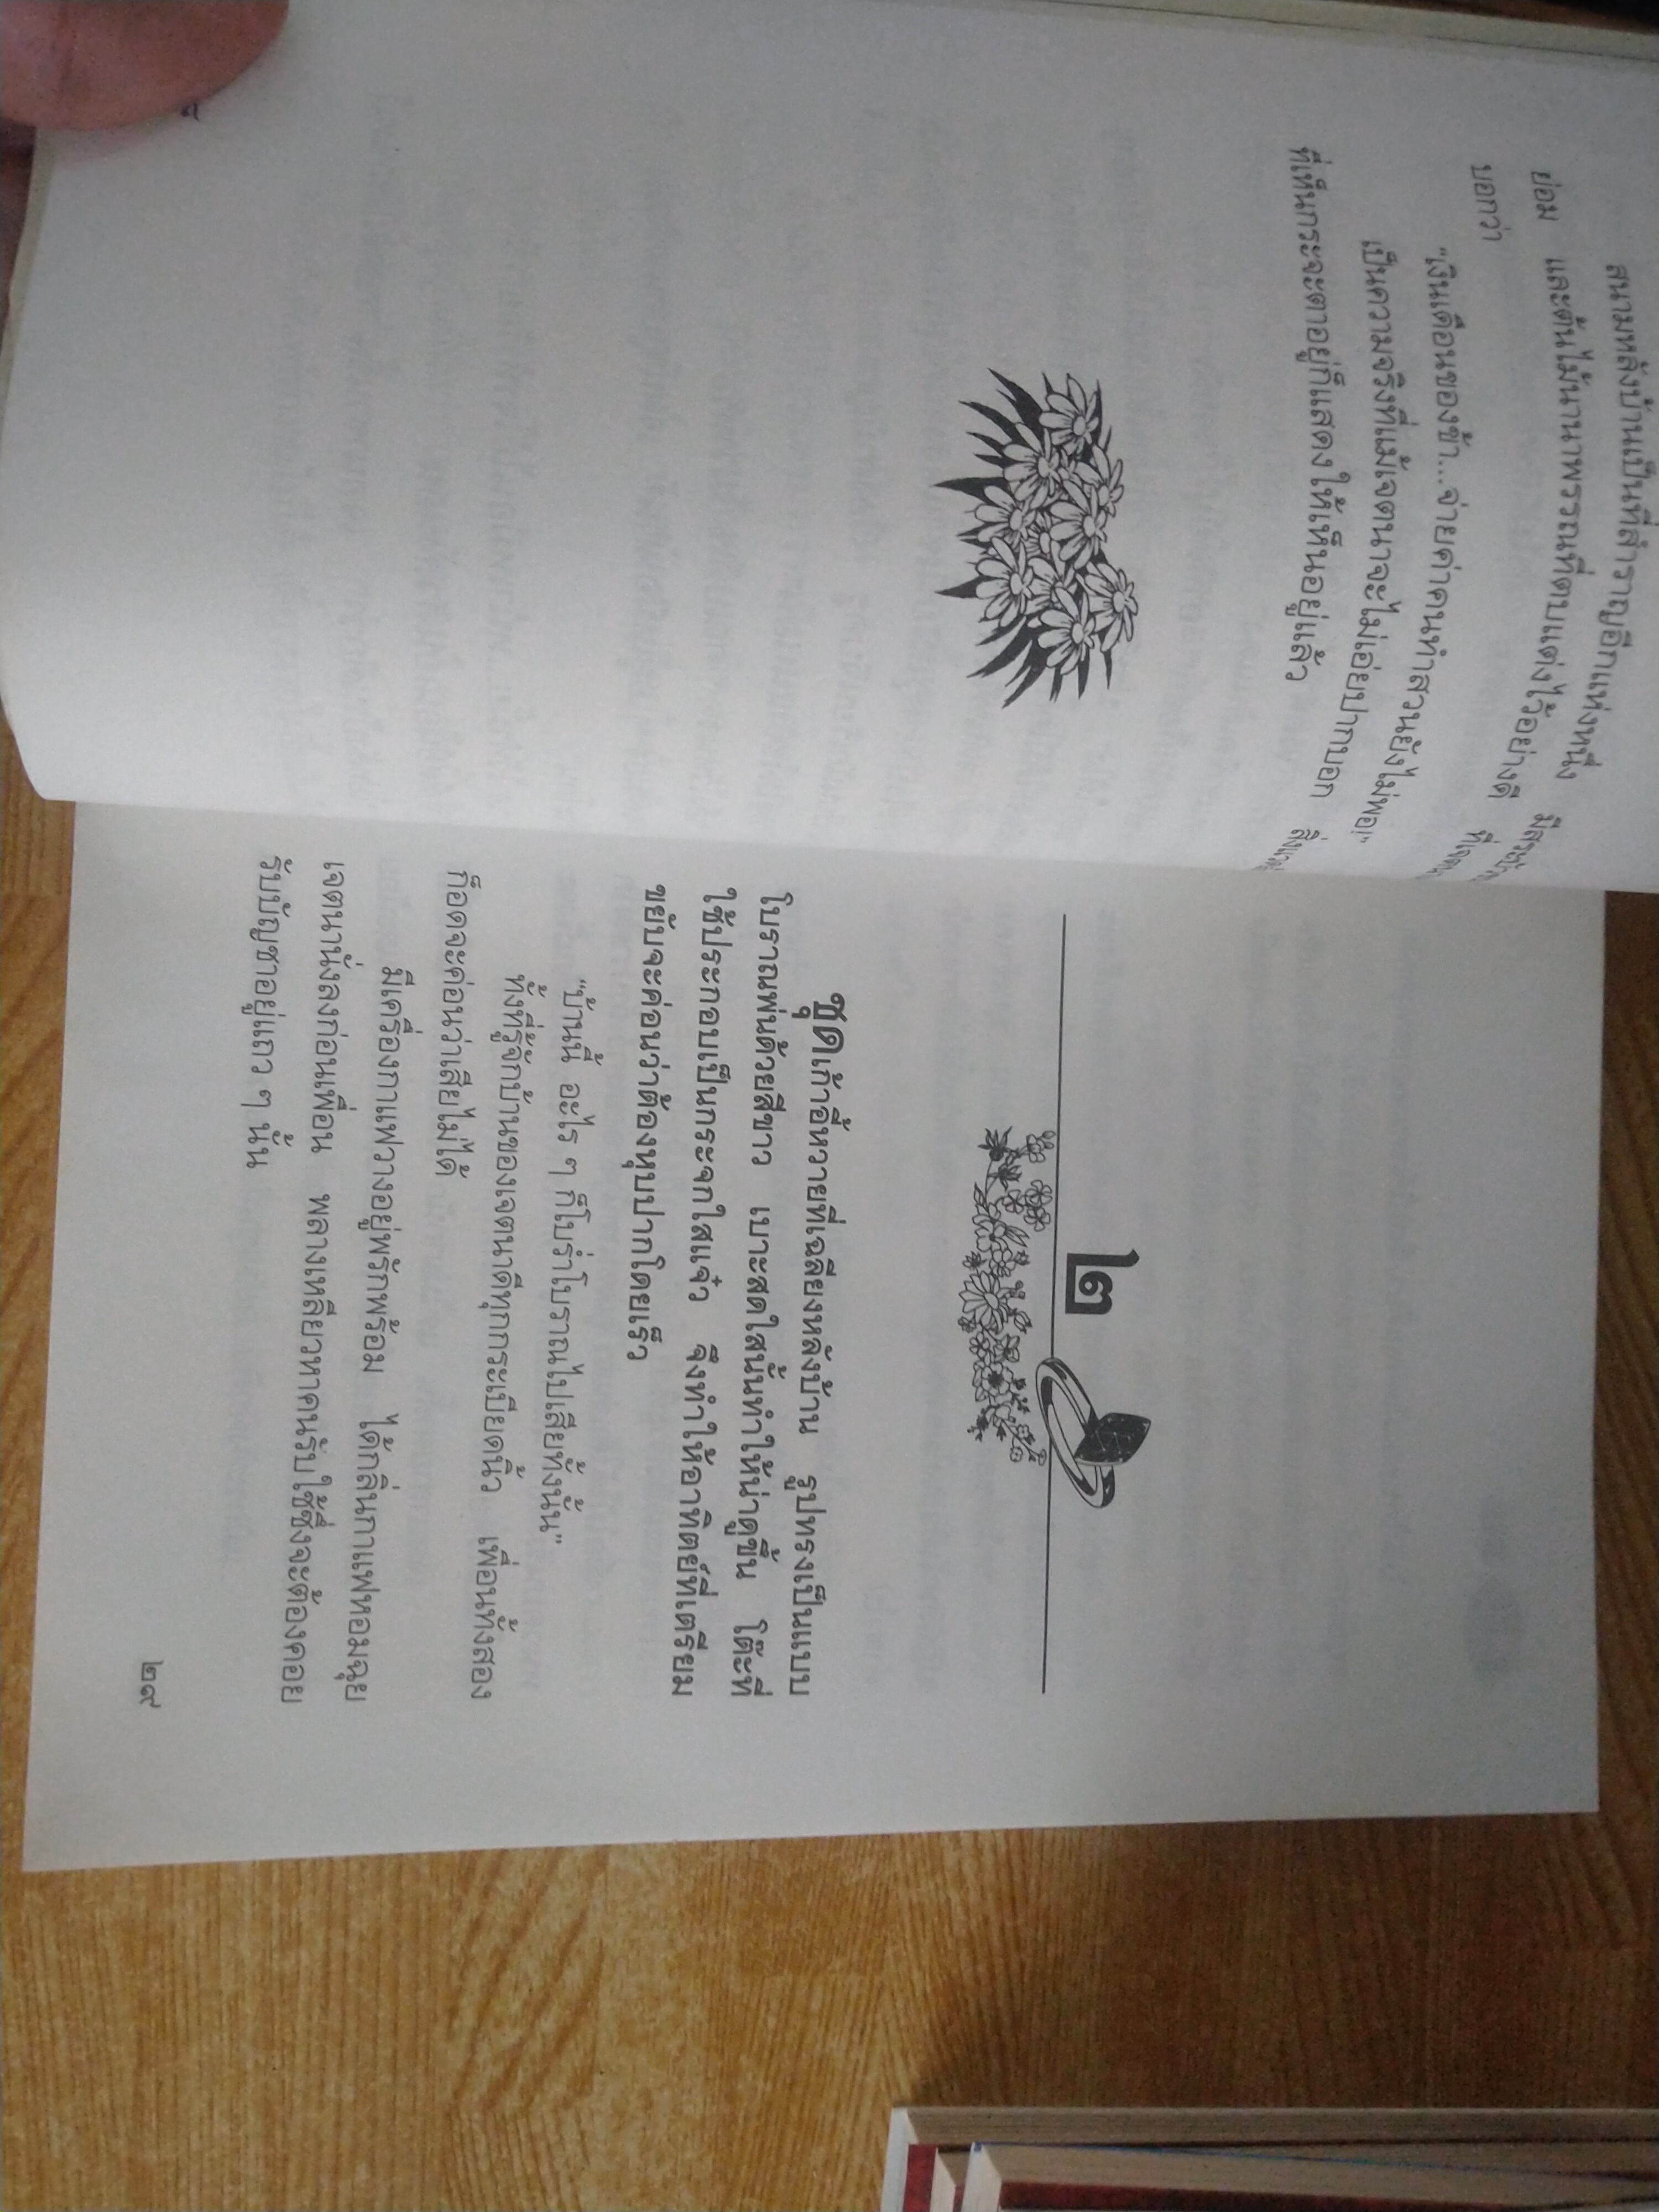 สนามหลังบ้านเป็นที่สำราญอีกแห่งหนึ่ง มีสระบัว
ย่อม และต้นไม้นานาพรรณที่ตบแต่งไว้อย่างดี ที่เจตนา
บอกว่า
“เงินเดือนของข้า...จ่ายค่าคนทำสวนยังไม่พอ!”
เป็นความจริงที่แม้เจตนาจะไม่เอ่ยปากบอก สิ่งแวด
ที่เห็นกระจะตาอยู่ก็แสดงให้เห็นอยู่แล้ว
๒
ชุดเก้าอี้หวายที่เฉลียงหลังบ้าน รูปทรงเป็นแบบ
โบราณพ่นด้วยสีขาว เบาะสดใสนั้นทำให้น่าดูขึ้น โต๊ะที่
ใช้ประกอบเป็นกระจกใสแจ๋ว จึงทำให้อาทิตย์ที่เตรียม
ขยับจะค่อนว่าต้องหุบปากโดยเร็ว
“บ้านนี้ อะไร ๆ ก็โบร่ำโบราณไปเสียทั้งนั้น”
ทั้งที่รู้จักบ้านของเจตนาดีทุกกระเบียดนิ้ว เพื่อนทั้งสอง
ก็อดจะค่อนว่าเสียไม่ได้
มีเครื่องกาแฟวางอยู่พรักพร้อม ได้กลิ่นกาแฟหอมฉุย
เจตนานั่งลงก่อนเพื่อน พลางเหลียวหาคนรับใช้ซึ่งจะต้องคอย
รับบัญชาอยู่แถว ๆ นั้น
๒๙